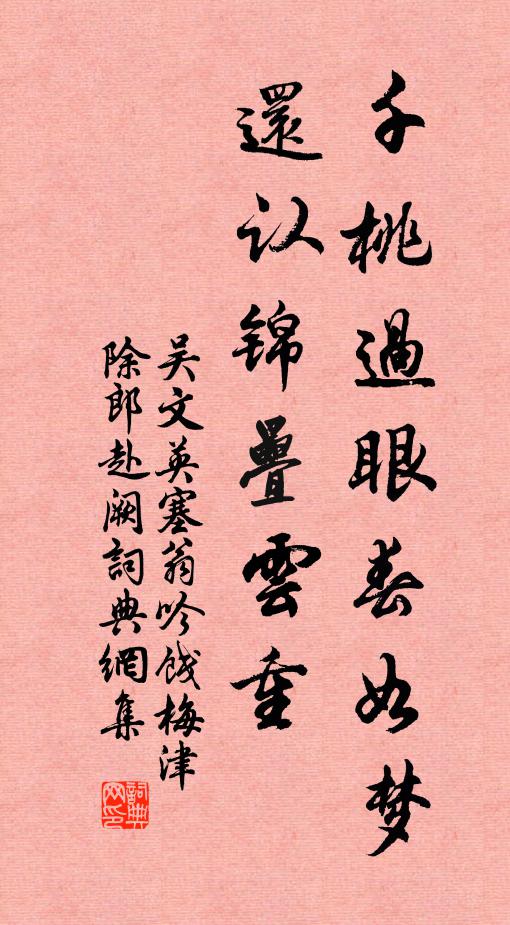 千桃過眼春如梦
還认锦疊雲重
吴文英塞翁吟饯梅津
除郎赴阙詞典網集
詞典网印